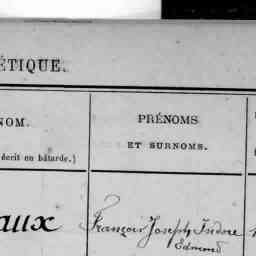 ÉTIQUE.
NOM.
PRÉNOMS
ET SURNOMS.
écrit en bâtarde.)
aux
François Joseph Isidore
Edmond